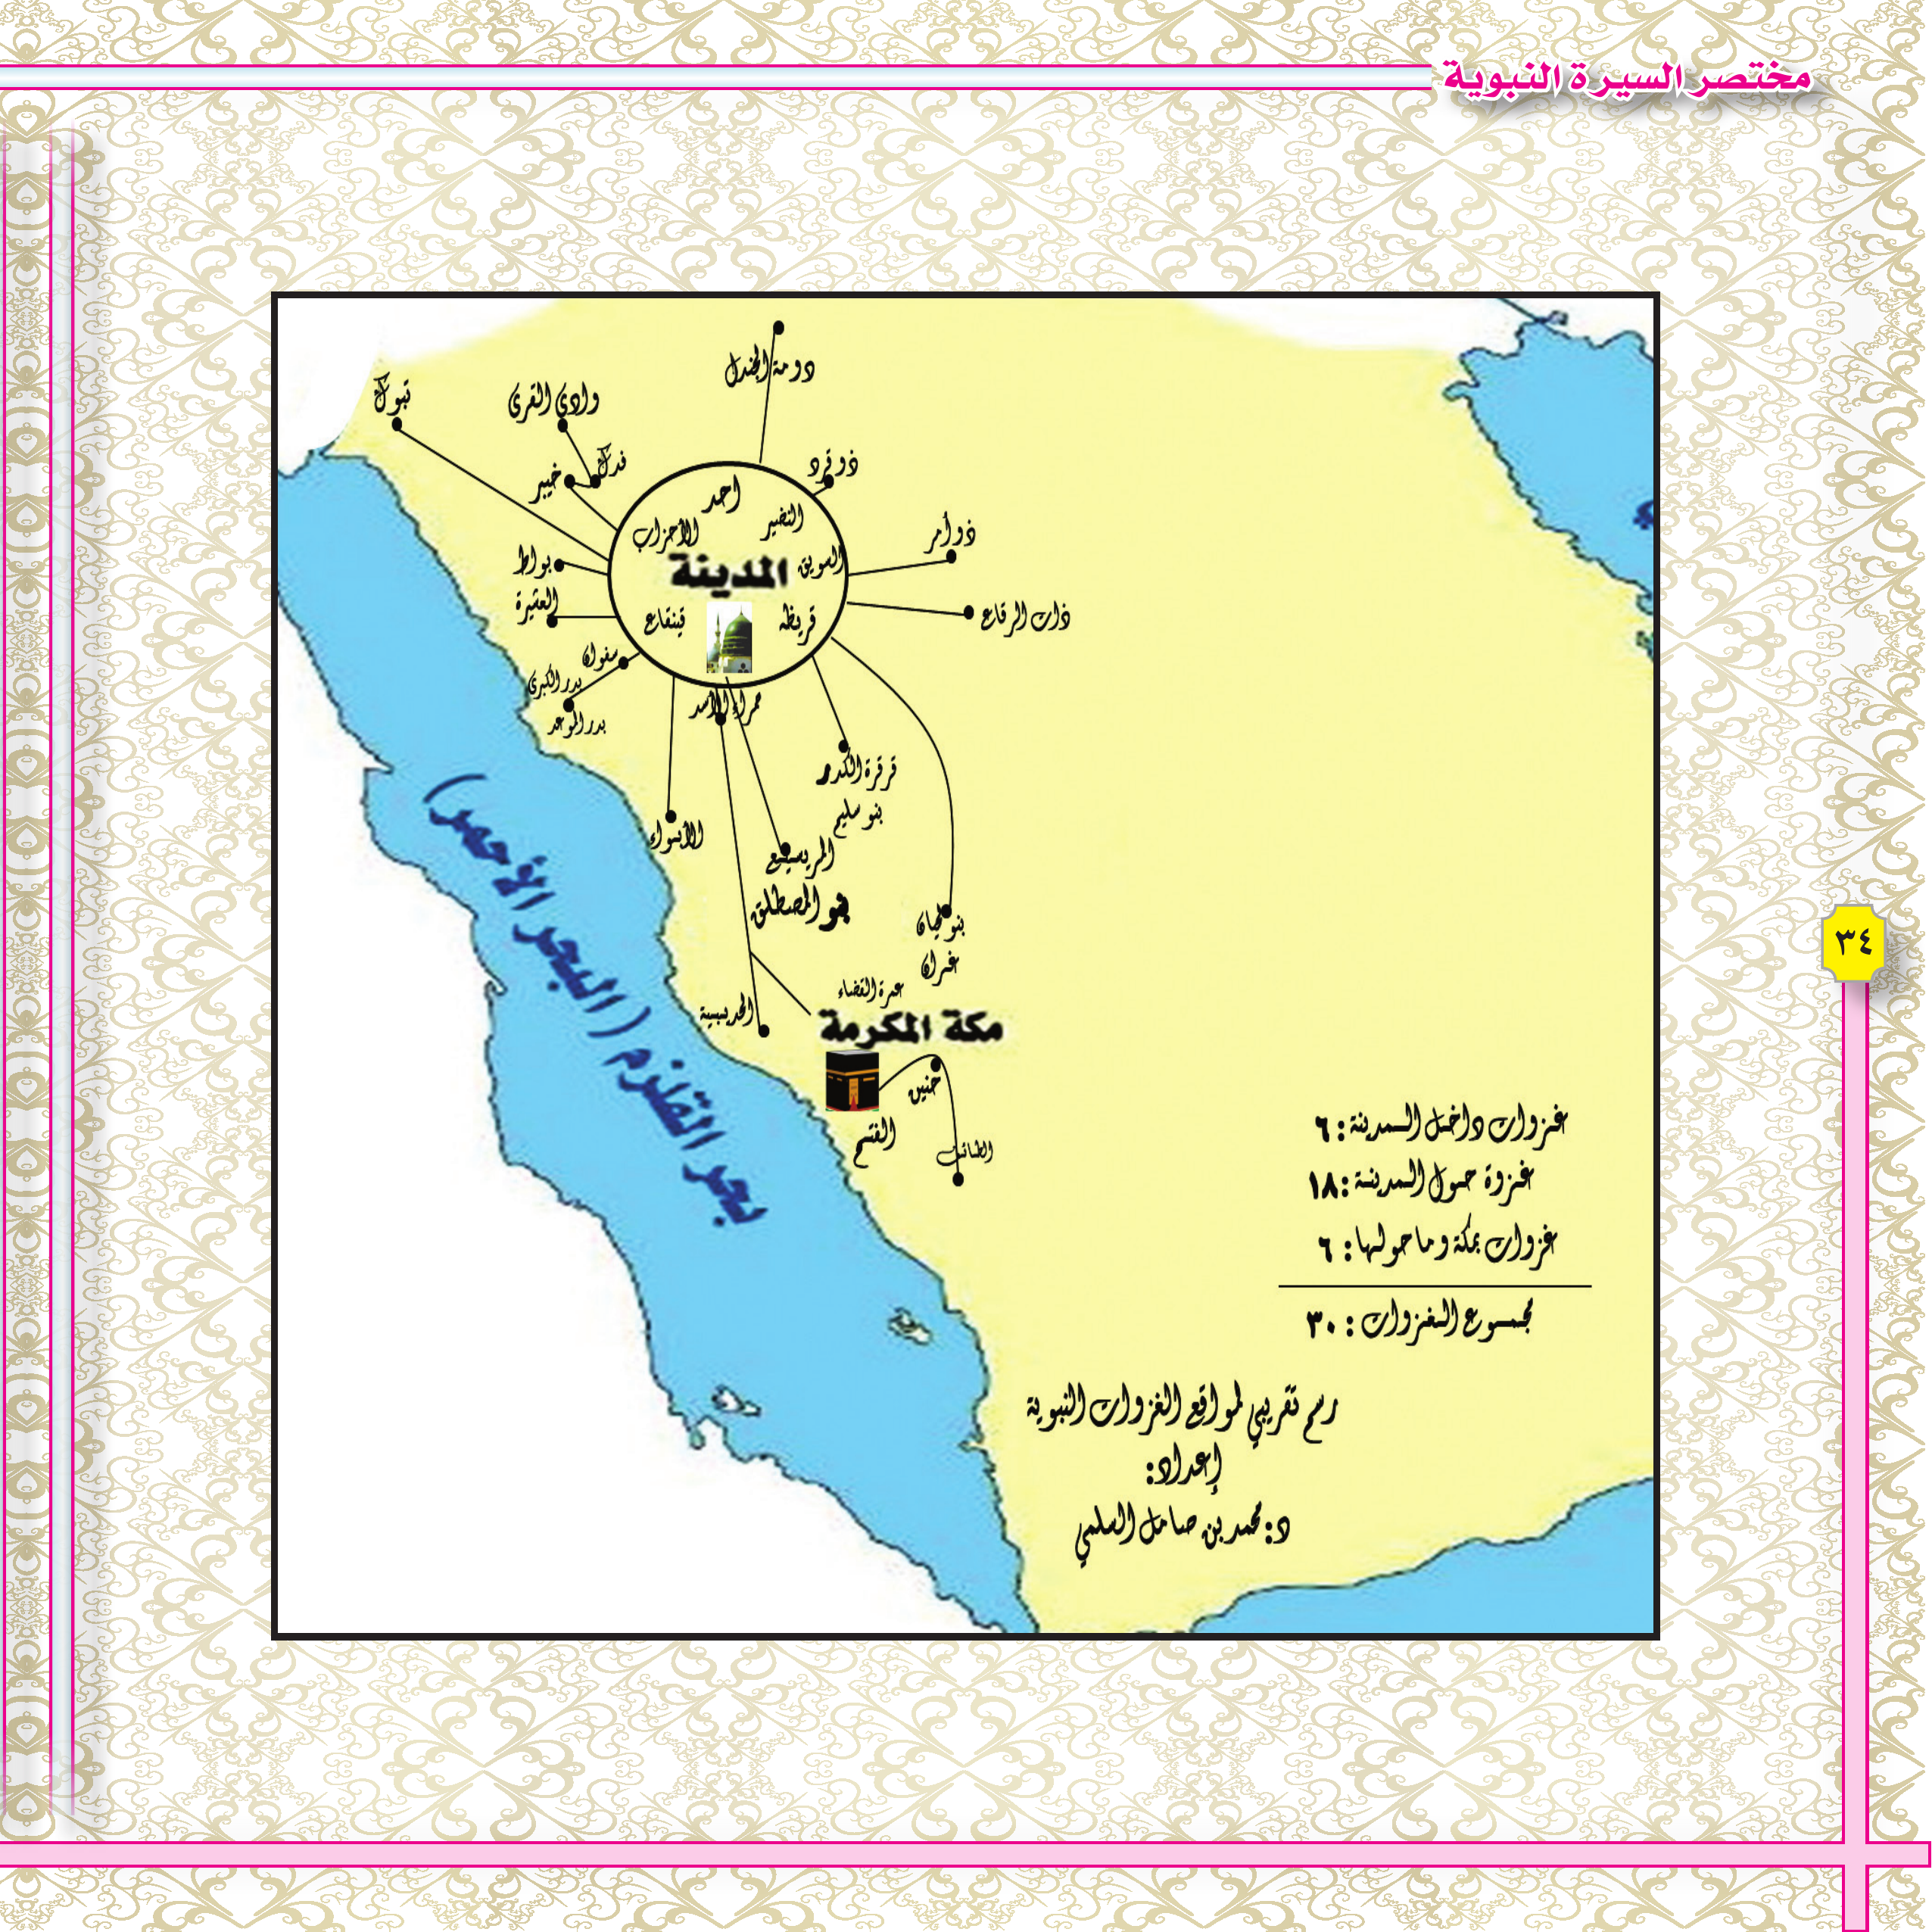 مختصر السيرة النبوية
دومة الجندل
تبوك
وادي القرى
فدك
خيبر
ذو قرد
احد
النضير
الأحزاب
ذو أمر
السويق
المدينة
بواط
العشيرة
ذات الرقاع
قريظه
قينقاع
سفوان
بدر الكبرى
بدر الموعد
حمراء الأسد
قرقرة الكدر
بنو سليم
الأبواء
المريسيع
بنو المصطلق
بنو لحيان
غران
عمرة القضاء
الحديبية
مكة المكرمة
حنين
الفتح
الطائف
بحر القلزم (البحر الاحمر)
٣٤
غزوات داخل المدينة : ٦
غزوة حول المدينة : ١٨
غزوات بمكة وما حولها : ٦
مجموع الغزوات : ٣٠
رسم تقريبي لمواقع الغزوات النبوية
إعداد :
د : محمد بن صامل السلمي